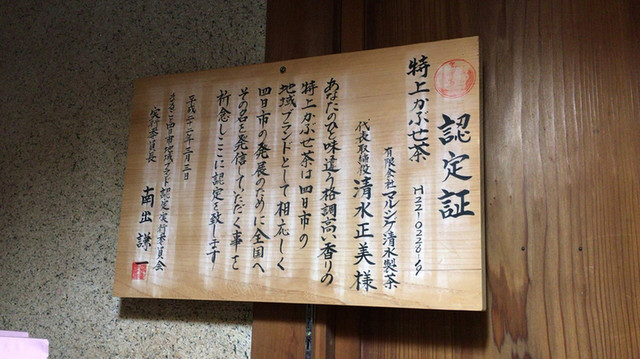 認定証
H22-0220-19
特上かぶせ茶
有限会社マルシゲ清水製茶
代表取締役 清水正美様
あなたのひと味違う格調高い香りの
特上かぶせ茶は四日市の
地域ブランドとして相応しく
四日市の発展のために全国へ
その名を発信していただく事を
祈念しここに認定を致します
平成二十二年三月五日
四日市地域ブランド認定実行委員会
実行委員長
南出謙一